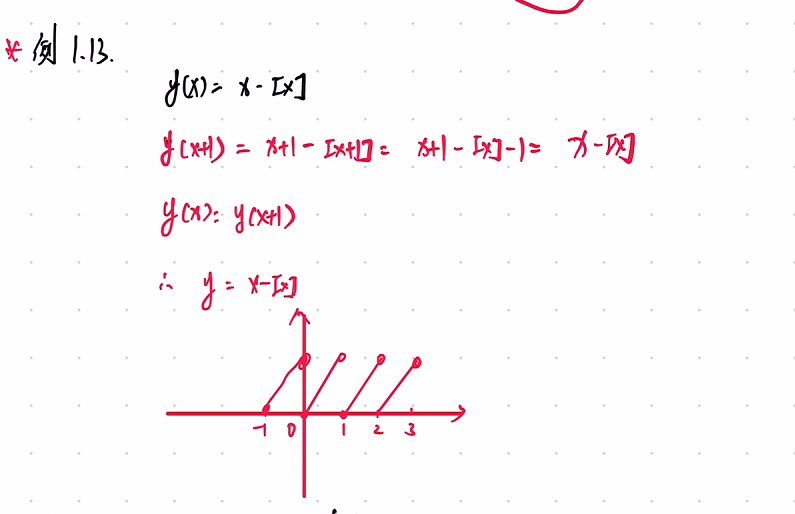 * 例 1.13.
y(x) = x - [x]
y(x+1) = x+1 - [x+1] = x+1 - [x] - 1 = x - [x]
y(x) = y(x+1)
∴ y = x - [x]
-1 0 1 2 3